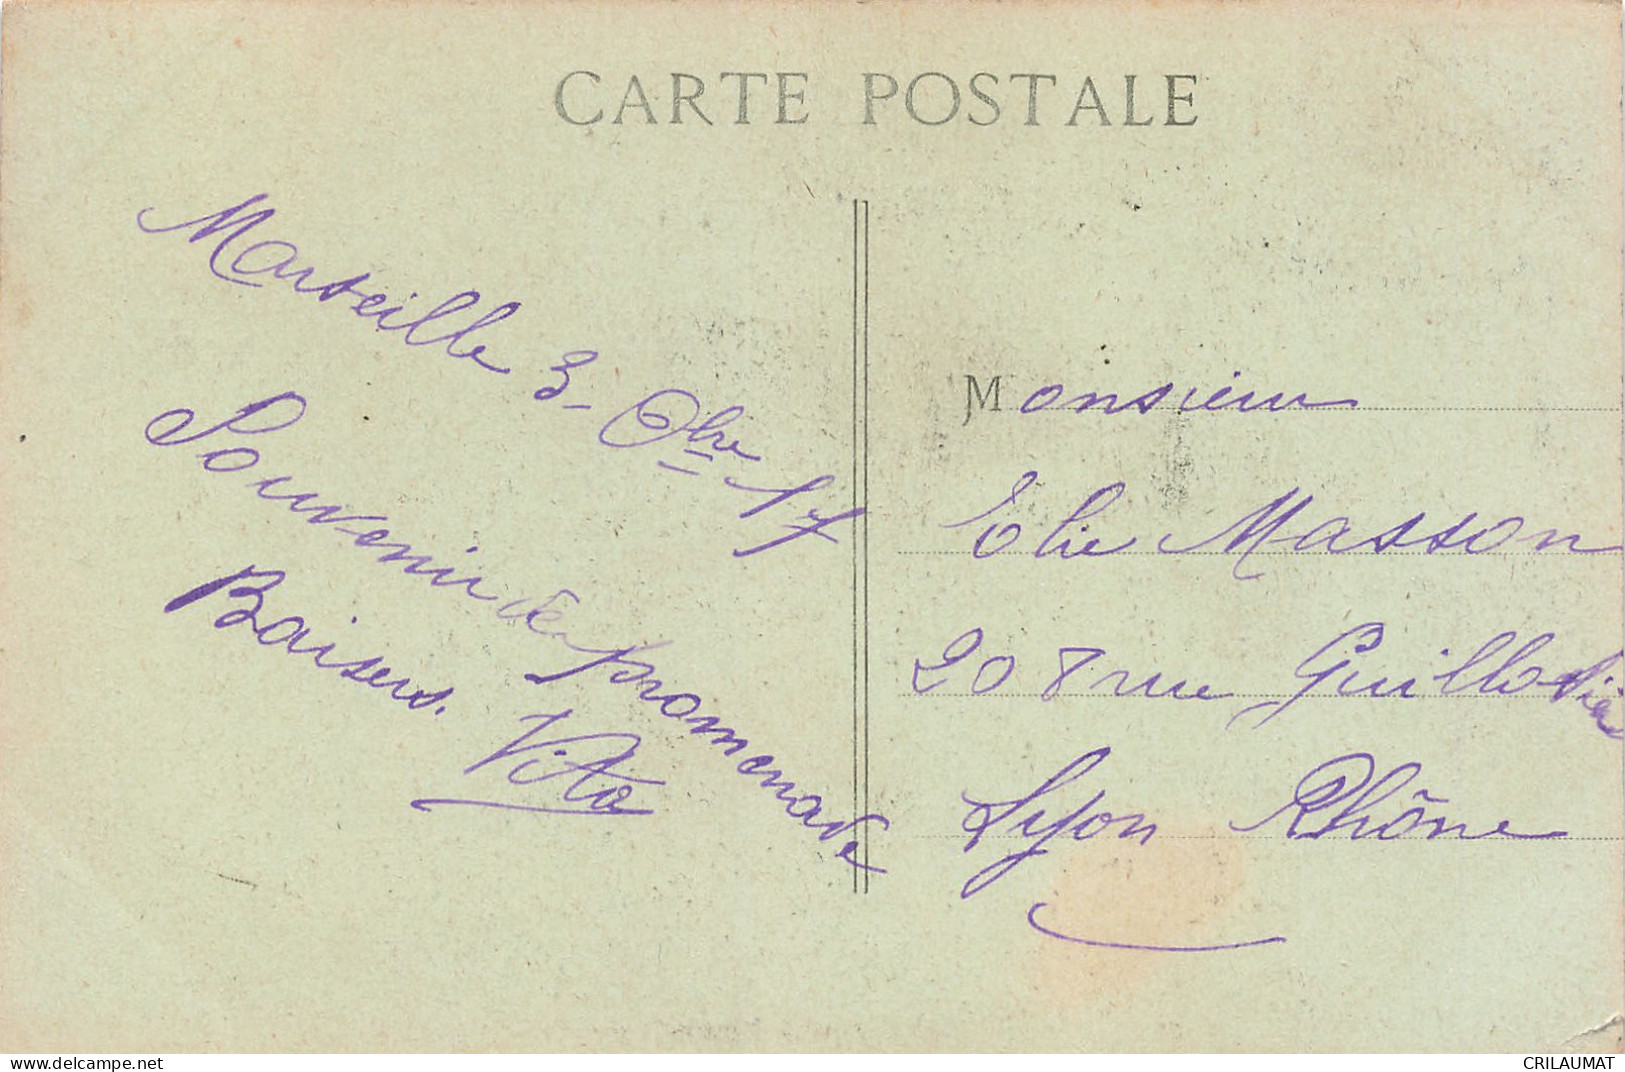 CARTE POSTALE
Marseille 3 - 8bre 17
Souvenir de promenade
Baisers.
Vita
Monsieur
Elie Masson
208 rue Guillotière
Lyon Rhône
www.delcampe.net
CRILAUMAT